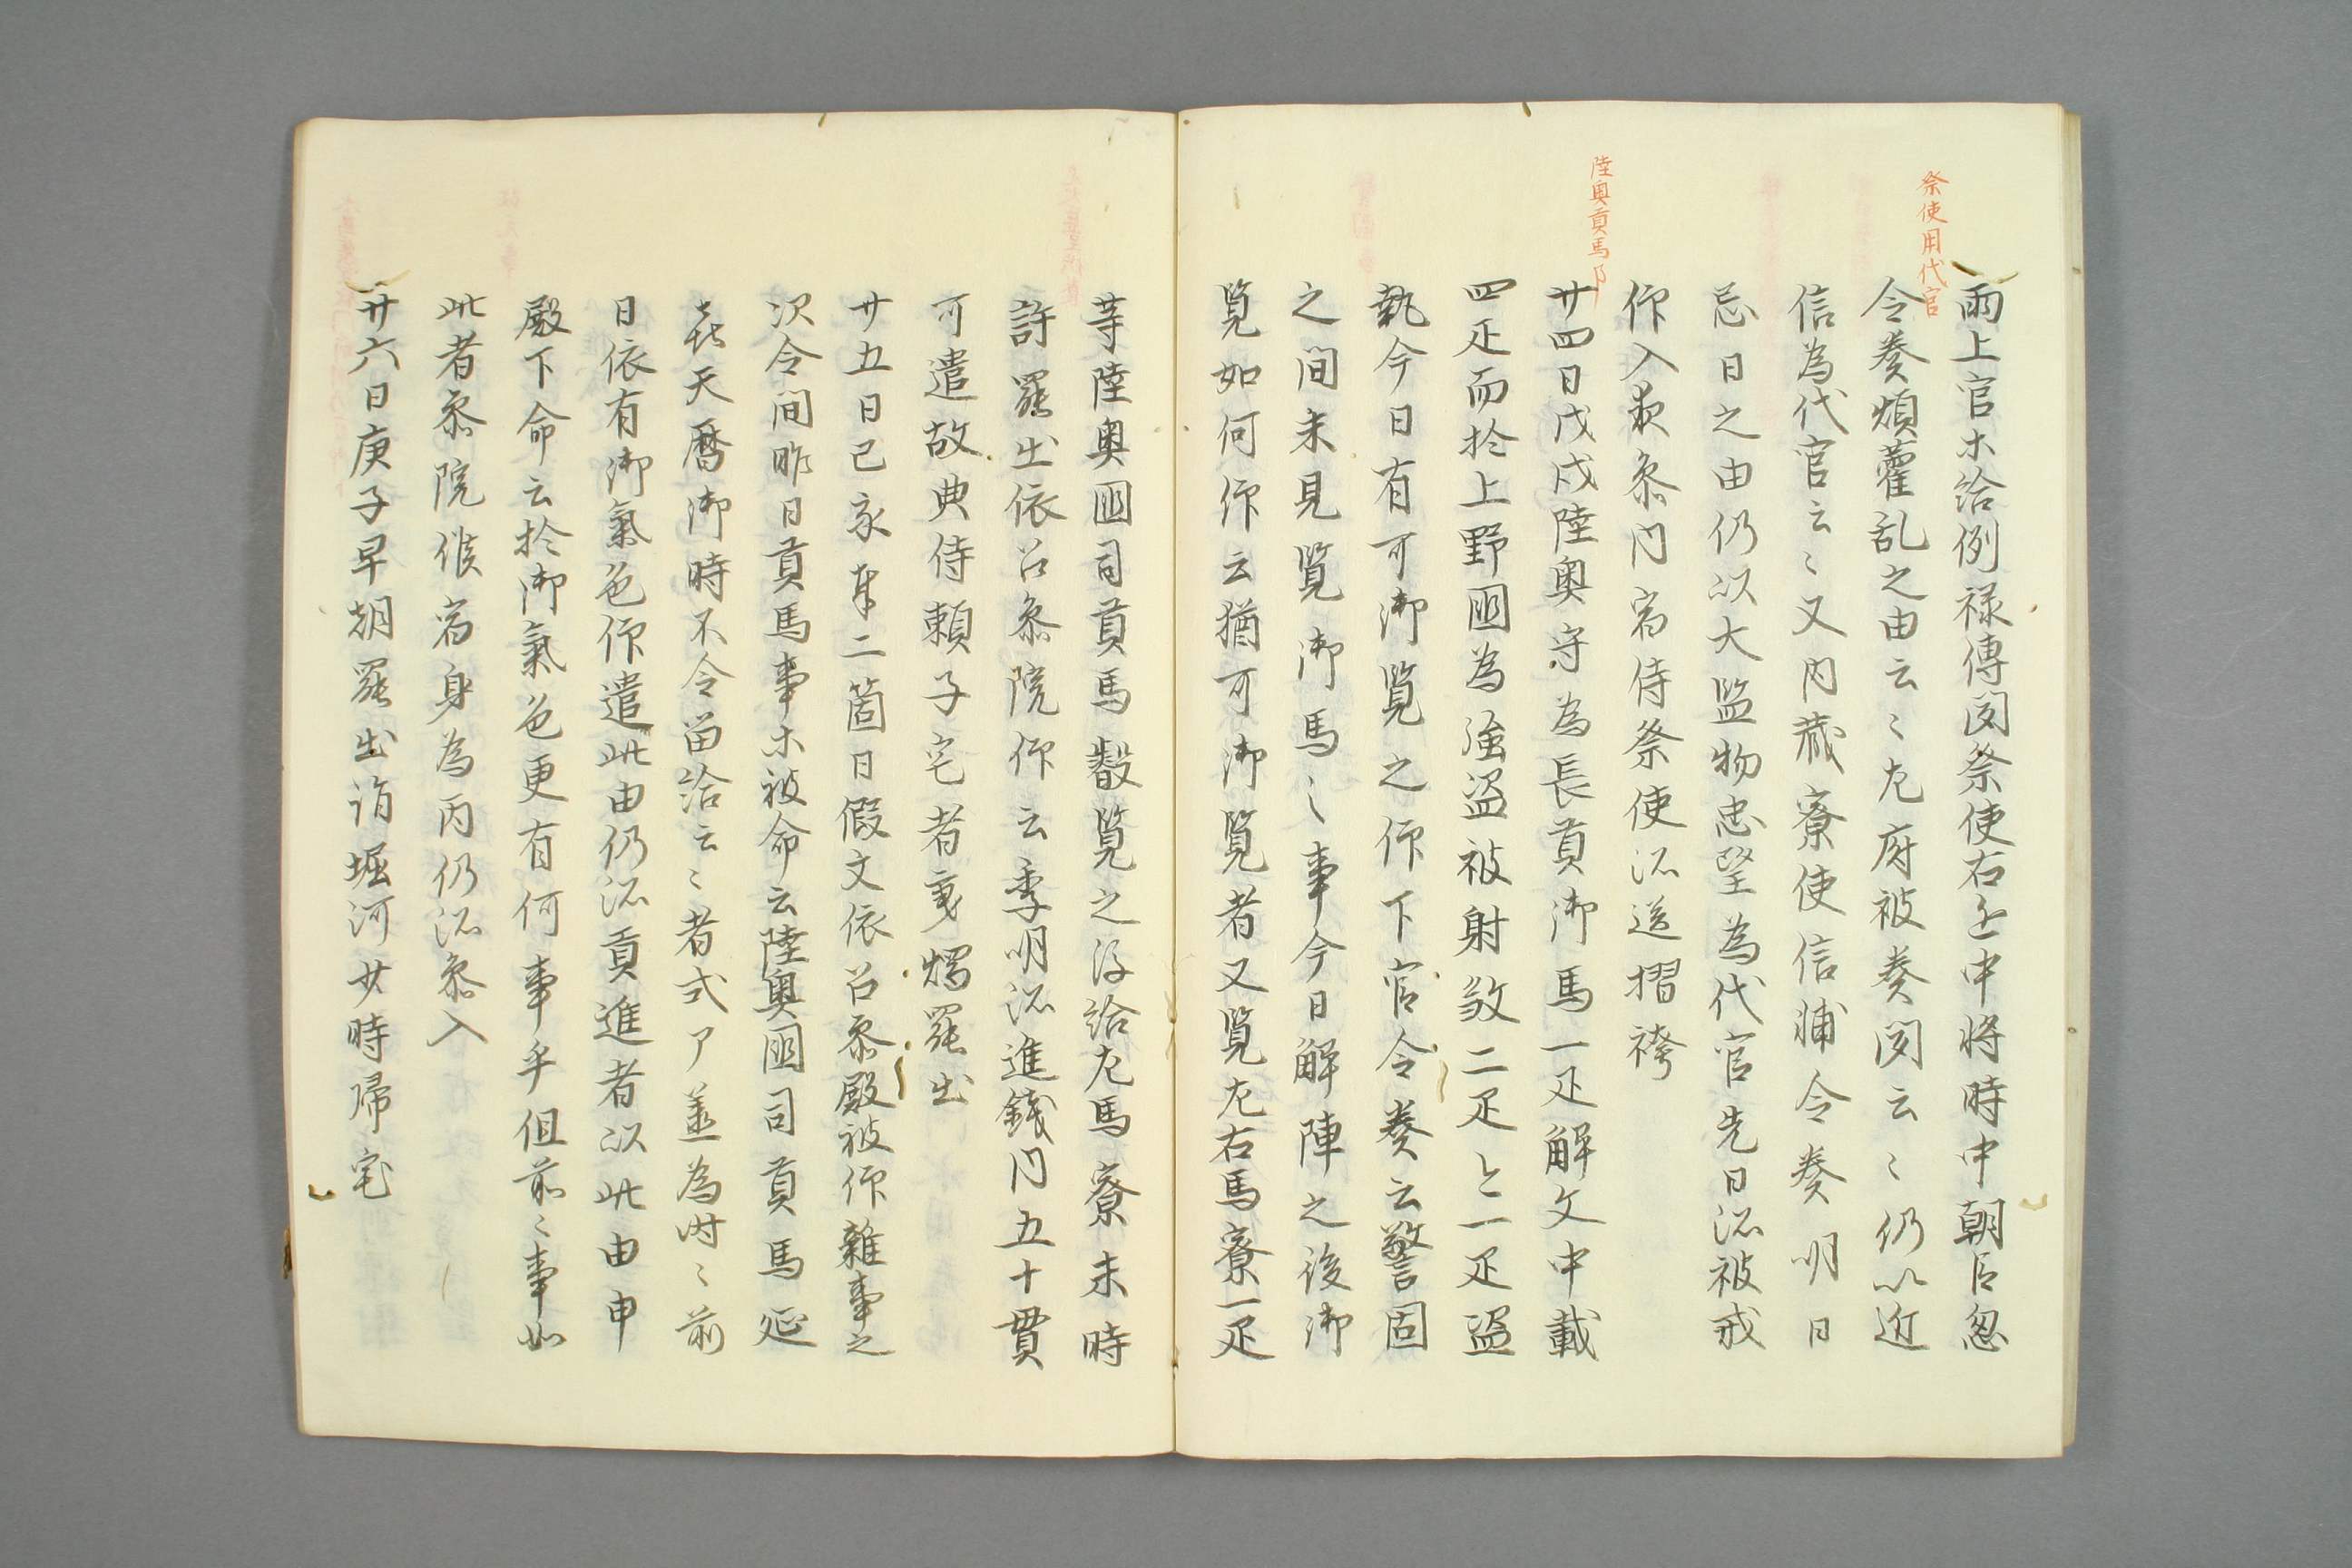 祭使用代官
陸奥貢馬
雨上官ホ給例禄傳聞祭使右近中将時中朝臣忽
令奏煩藿乱之由云々左府被奏聞云々仍以近
信為代官云々又内蔵寮使信輔令奏明日
忌日之由仍以大監物忠望為代官先日所被戒
仰入夜参内宿侍祭使所送摺袴
廿四日戊戌陸奥守為長貢御馬一疋解文中載
四疋而於上野國為強盗被射敓二疋々一疋盗
執今日有可御覧之仰下官令奏云警固
之間未見覧御馬之事今日解陣之後御
覧如何仰云猶可御覧者又覧左右馬寮一疋
等陸奥國司貢馬叡覧之後給左馬寮未時
許罷出依召参院仰云季明所進銭内五十貫
可遣故典侍頼子宅者秉燭罷出
廿五日己亥身二箇日假文依召参殿被仰雑事之
次令間昨日貢馬事ホ被命云陸奥國司貢馬延
㐂天暦御時不令留給云々者式了並為時々前
日依有御氣色仰遣此由仍所貢進者以此由申
殿下命云於御氣色更有何事乎但前々事如
此者参院候宿身為丙仍所参入
廿六日庚子早朝罷出詣堀河廿時帰宅